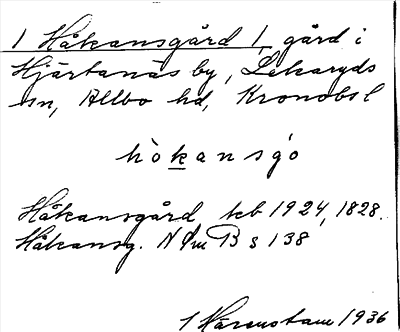 1 Håkansgård 1, gård i
Hjärtanäs by, Lekaryds
sn, Allbo hd, Kronobsl
hò k a n s g ó
Håkansgård jeb 1924, 1828.
Håkansg. NSm B s 138
1 Härenstam 1936